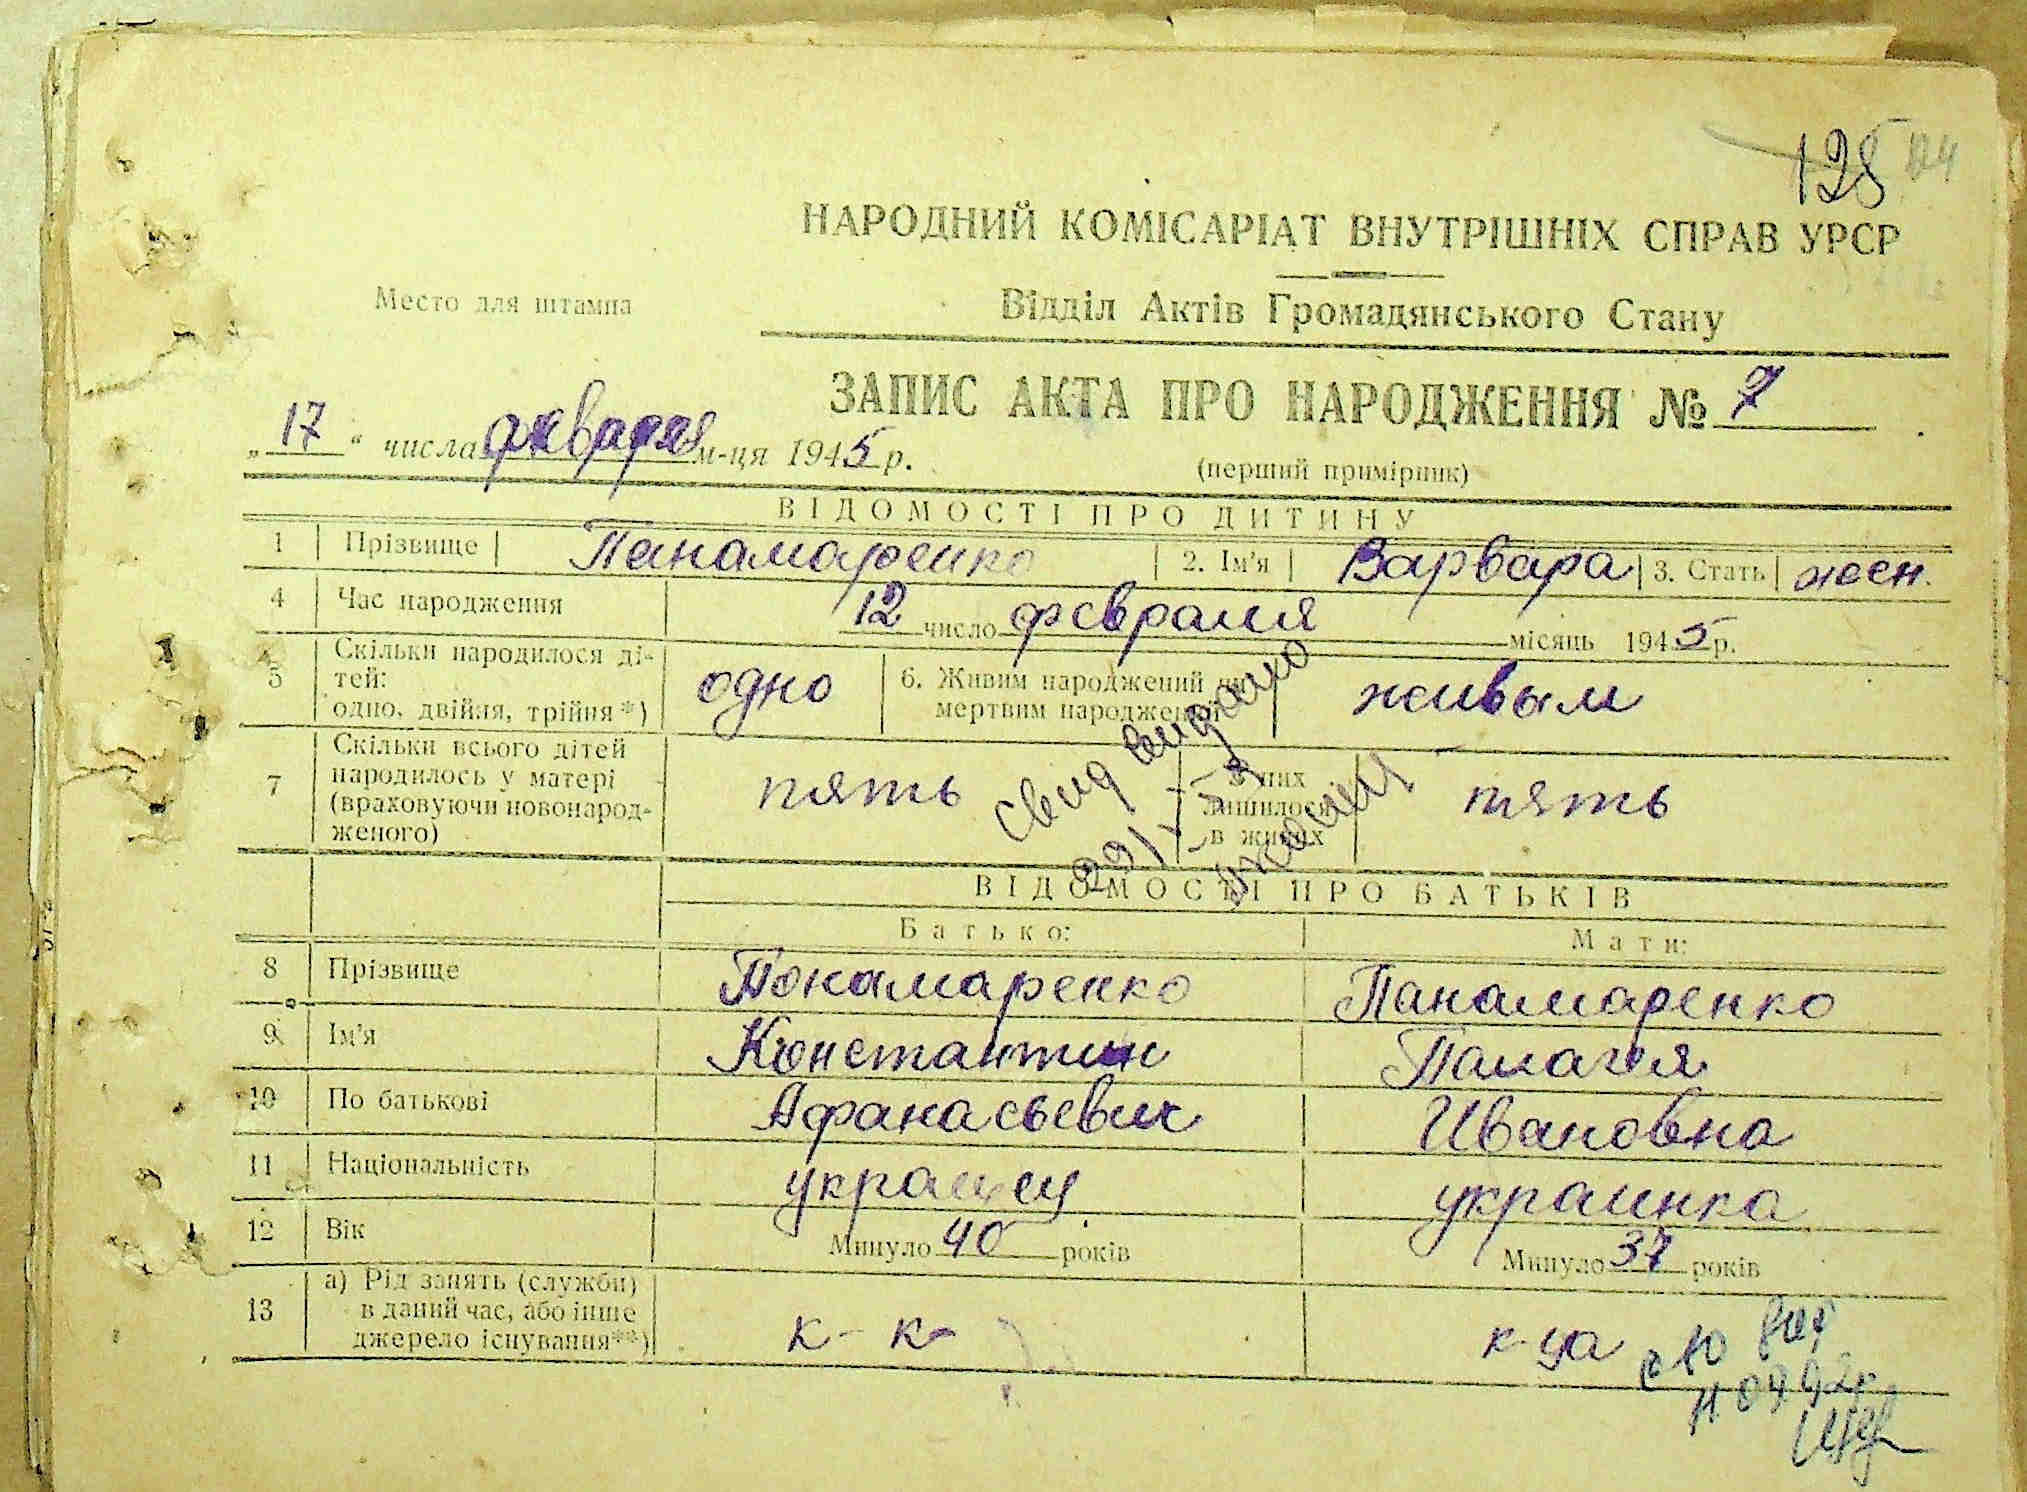 125
НАРОДНИЙ КОМІСАРІАТ ВНУТРІШНІХ СПРАВ УРСР
Место для штампа
Відділ Актів Громадянського Стану
ЗАПИС АКТА ПРО НАРОДЖЕННЯ № 7
„17“ числа м-ця 1945 р.
(перший примірник)
ВІДОМОСТІ ПРО ДИТИНУ
1 Прізвище Панамаренко 2. Ім'я Варвара 3. Стать жен.
4 Час народження 12 число февраля місяць 1945 р.
5 Скільки народилося ді-
тей:
одно, двійня, трійня*) одно 6. Живим народжений чи
мертвим народжений живым
7 Скільки всього дітей
народилось у матері
(враховуючи новонарод-
женого) пять З них
лишилося
в живих пять
свид выдано
ВІДОМОСТІ ПРО БАТЬКІВ
Батько: Мати:
8 Прізвище Понамаренко Панамаренко
9 Ім'я Константин Палагея
10 По батькові Афанасьевич Ивановна
11 Національність украинец украинка
12 Вік Минуло 40 років Минуло 37 років
13 а) Рід занять (служби)
в даний час, або інше
джерело існування**) к-к к-ца